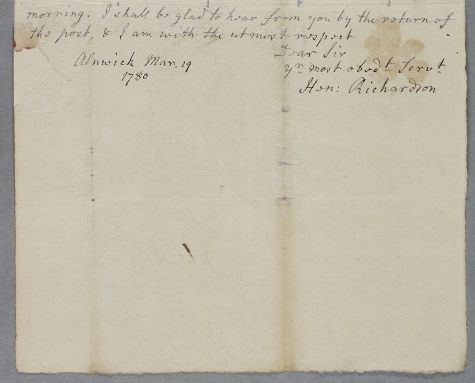 morning. I shall be glad to hear from you by the return of
the post, & I am with the utmost respect
Dear Sir
Alnwick Mar. 19
yr. most obedt. Servt.
1780
Hen: Richardson